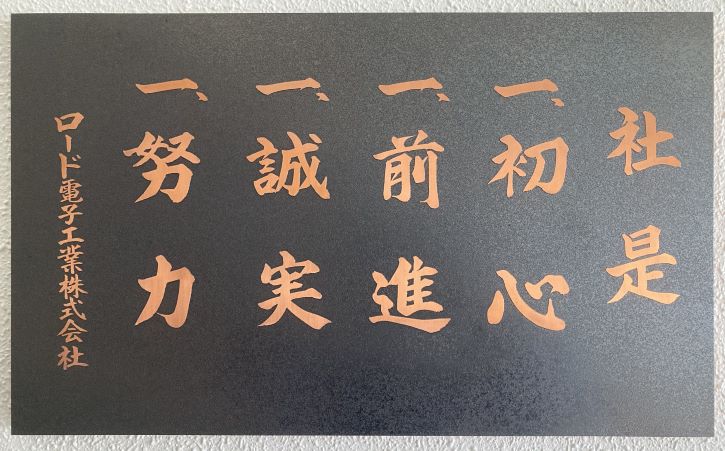 社是
一、初心
一、前進
一、誠実
一、努力
ロード電子工業株式会社